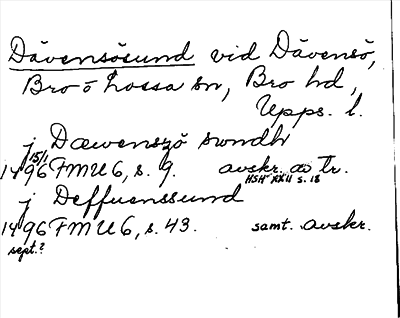 Dävensösund vid Dävensö,
Bro o Lossa sn, Bro hd,
Upps. l.
j Dæwenszö swndh
15/1
1496 FMU 6, s. 9. avskr. av tr.
HSH XX11 s. 18
j Deffuenssund
1496 FMU 6, s. 43. samt. avskr.
sept.?